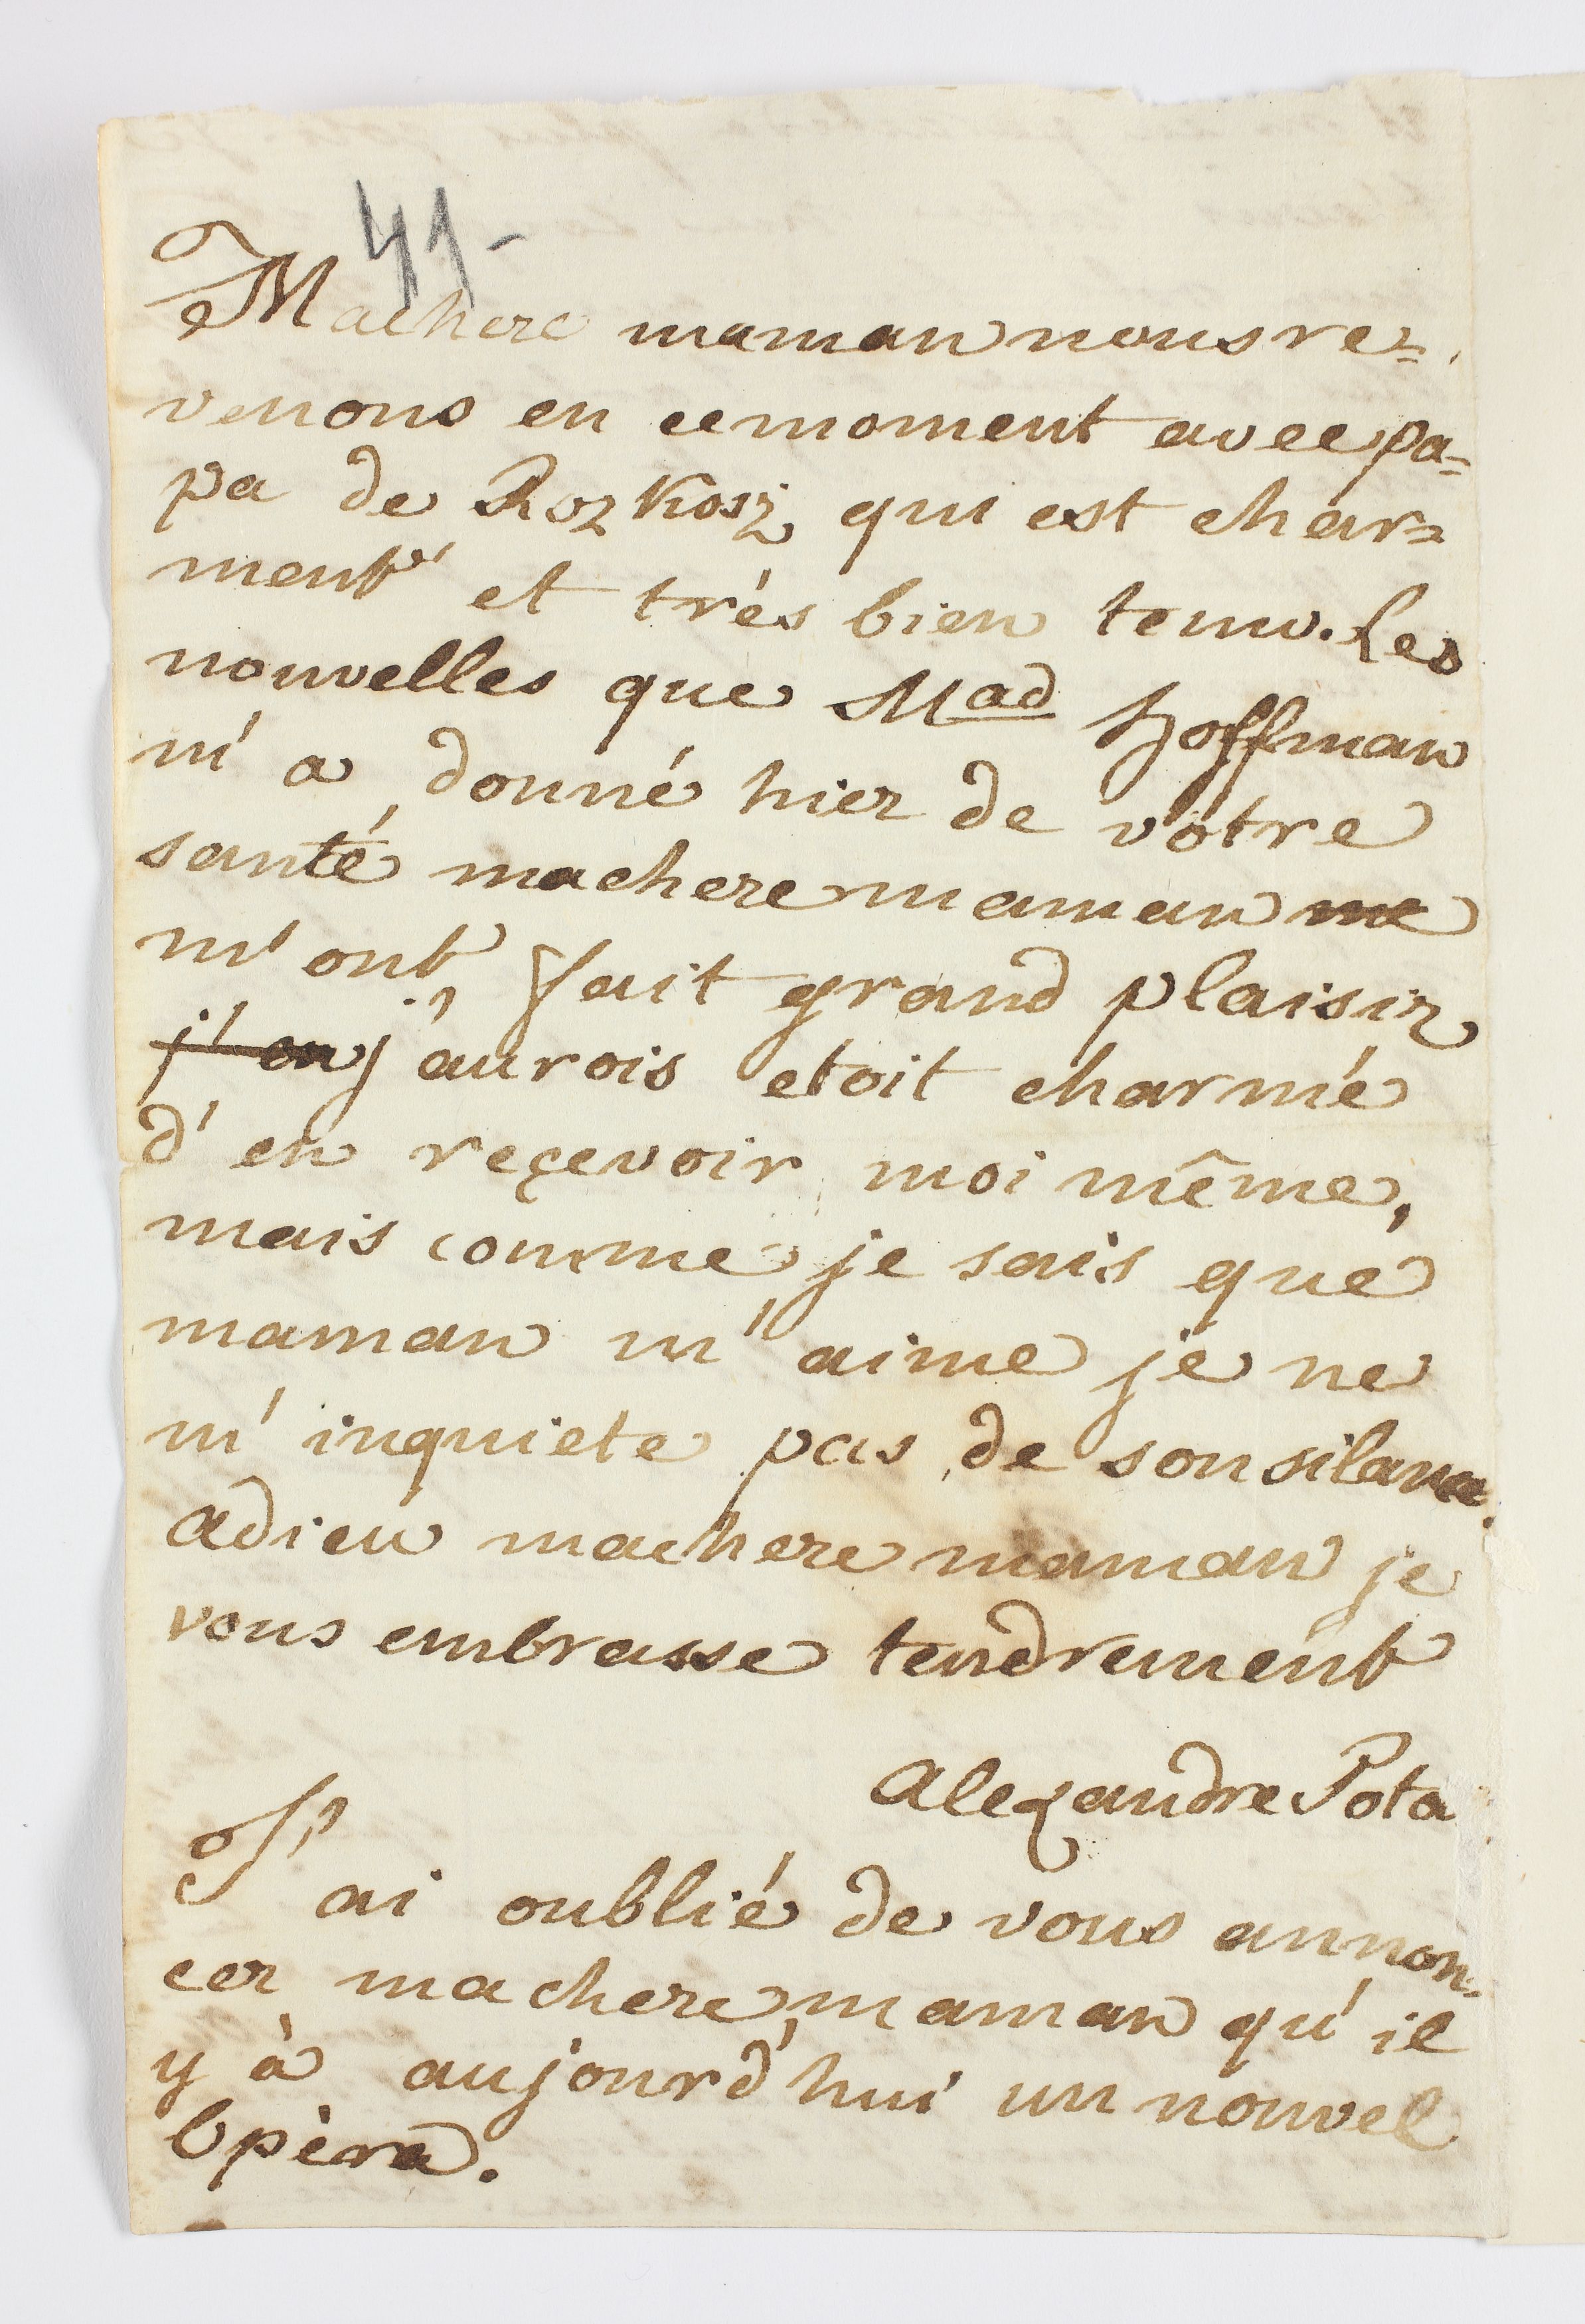 41-
Machere maman nous re=
venons en ce moment avec pa=
pa de Rozkosz qui est char=
ment et trés bien tenu. Les
nouvelles que Mad Hoffman
m'a donné hier de vôtre
santé machere maman me
m'ont fait grand plaisir
j'en j'aurois etoit charmé
d'en reçevoir moi même,
mais comme je sais que
maman m'aime je ne
m'inquiete pas de son silance.
adieu machere maman je
vous embrasse tendrement
Alexandre Pota
J'ai oublié de vous annon=
cer machere maman qu'il
y à aujourd'hui un nouvel
Opèra.